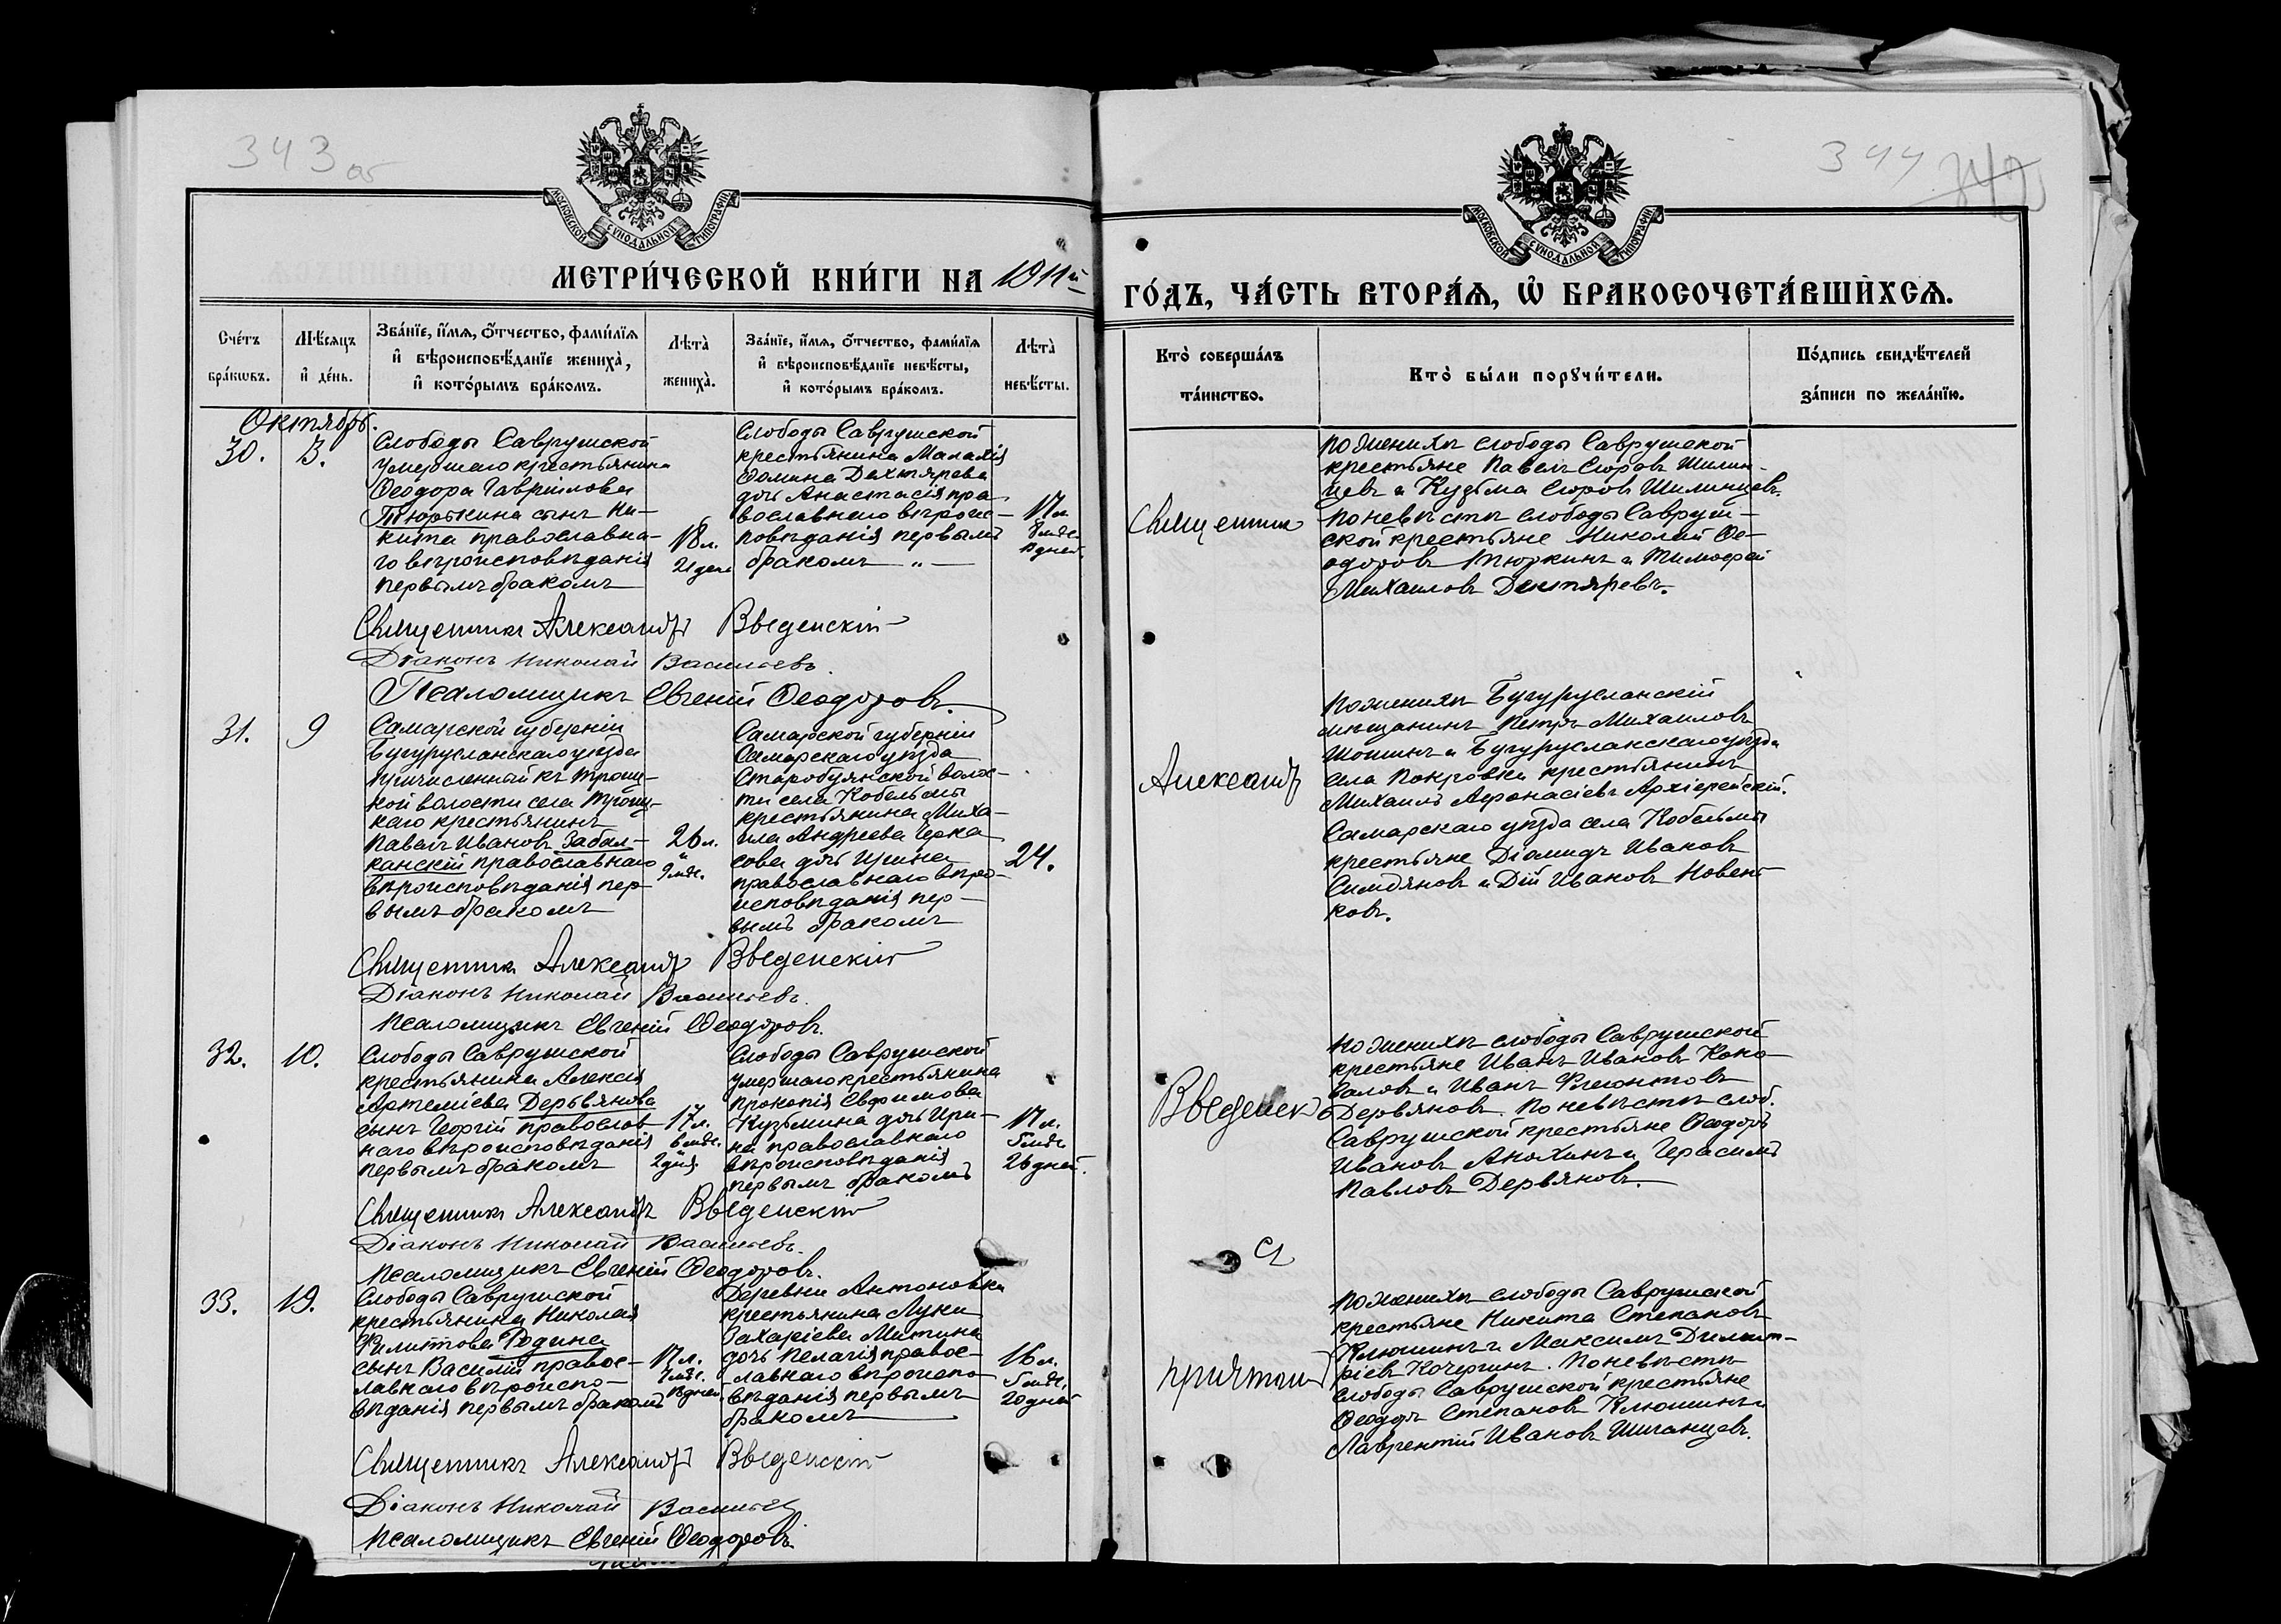 343 об
344
МОСКОВСКОЙ СѴНОДАЛЬНОЙ ТИПОГРАФІИ
МОСКОВСКОЙ СѴНОДАЛЬНОЙ ТИПОГРАФІИ
МЕТРИ́ЧЕСКОЙ КНИ́ГИ НА 1911й
ГО́ДЪ, ЧА́СТЬ ВТОРА́Ѧ, Ѽ БРАКОСОЧЕТА́ВШИХСѦ.
Сче́тъ
бра́кωвъ.
Мѣ́сяцъ
и҆ де́нь.
Зва́нїе, и҆́мѧ, ѻ҆́тчество, фами́лїѧ
и҆ вѣроисповѣ́данїе жениха̀,
и҆ кото́рымъ бра́комъ.
Лѣта̀
жениха̀.
Зва́нїе, и҆́мѧ, ѻ҆́тчество, фами́лїѧ
и҆ вѣроисповѣ́данїе невѣ́сты,
и҆ кото́рымъ бра́комъ.
Лѣта̀
невѣ́сты.
Кто̀ соверша́лъ
та́инство.
Кто̀ бы́ли порꙋчи́тели.
По́дпись свидѣ́телей
за́писи по жела́нїю.
Октябрь.
30.
3.
Слободы Саврушской
умершаго крестьянина
Ѳеодора Гавріилова
Тюрькина сынъ Ни-
кита православна-
го вѣроисповѣданія
первымъ бракомъ
18 л.
21 день
Слободы Саврушской
крестьянина Малахія
Ѳомина Дехтярева
дочь Анастасія пра-
вославнаго вѣроис-
повѣданія первымъ
бракомъ „
17 л.
8 мѣс.
дней
Священникъ
По женихѣ слободы Саврушской
крестьяне Павелъ Егоровъ Шилин-
цевъ и Кузьма Егоровъ Шилинцевъ.
По невѣстѣ слободы Савруш-
ской крестьяне Николай Ѳе-
одоровъ Тюркинъ и Тимофей
Михаиловъ Дехтяревъ.
Священникъ Александръ Введенскій
Діаконъ Николай Васильевъ
Псаломщикъ Евгеній Ѳеодоровъ.
31.
9
Самарской губерніи
Бугурусланскаго уѣзда
причисленный къ Троиц-
кой волости села Троиц-
каго крестьянинъ
Павелъ Иванов Забал-
канскій православнаго
вѣроисповѣданія пер-
вымъ бракомъ
26 л.
9 мѣс.
Самарской губерніи
Самарскаго уѣзда
Старобуянской волос-
ти села Кобельмы
крестьянина Миха-
ила Андреева Черка-
сова дочь Ирина
православнаго вѣро-
исповѣданія пер-
вымъ бракомъ
24.
Александръ
По женихѣ Бугурусланскій
мѣщанинъ Петръ Михаиловъ
Шошинъ и Бугурусланскаго уѣзда
села Покровки крестьянинъ
Михаилъ Аѳонасіевъ Архіерейскій.
Самарскаго уѣзда села Кобельмы
крестьяне Діомидъ Ивановъ
и Дій Ивановъ Новень-
ковъ.
Священникъ Александръ Введенскій
Діаконъ Николай Васильевъ.
Псаломщикъ Евгеній Ѳеодоровъ.
32.
10.
Слободы Саврушской
крестьянина Алексія
Артеміева Деревянова
сынъ Георгій православ-
наго вѣроисповѣданія
первымъ бракомъ
17 л.
6 мѣс.
2 дня.
Слободы Саврушской
умершаго крестьянина
Прокопія Евфимова
Кузьмина дочь Ири-
на православнаго
вѣроисповѣданія
первымъ бракомъ
17 л.
5 мѣс.
26 дней.
Введенск
По женихѣ слободы Саврушской
крестьяне Иванъ Ивановъ Коно-
валовъ и Иванъ Флегонтовъ
Деревяновъ. По невѣстѣ слоб.
Саврушской крестьяне Ѳеодоръ
Ивановъ Анохинъ и Герасимъ
Павловъ Деревяновъ.
Священникъ Александръ Введенскій
Діаконъ Николай Васильевъ.
Псаломщикъ Евгеній Ѳеодоровъ.
33.
19.
Слободы Саврушской
крестьянина Николая
Филиппова Родина
сынъ Василій правос-
лавнаго вѣроиспо-
вѣданія первымъ бракомъ
17 л.
7 мѣс.
дней.
Деревни Антоновки
крестьянина Луки
Захаріева Митина
дочь Пелагія правос-
лавнаго вѣроиспо-
вѣданія первымъ
бракомъ
16 л.
5 мѣс.
20 дней
съ
причтомъ
По женихѣ слободы Саврушской
крестьяне Никита Степановъ
Клюшинъ и Максимъ Димит-
ріевъ Кочергинъ. По невѣстѣ
слободы Саврушской крестьяне
Ѳеодоръ Степановъ Клюшинъ и
Лаврентій Ивановъ Шиганцевъ.
Священникъ Александръ Введенскій
Діаконъ Николай Васильевъ
Псаломщикъ Евгеній Ѳеодоровъ.